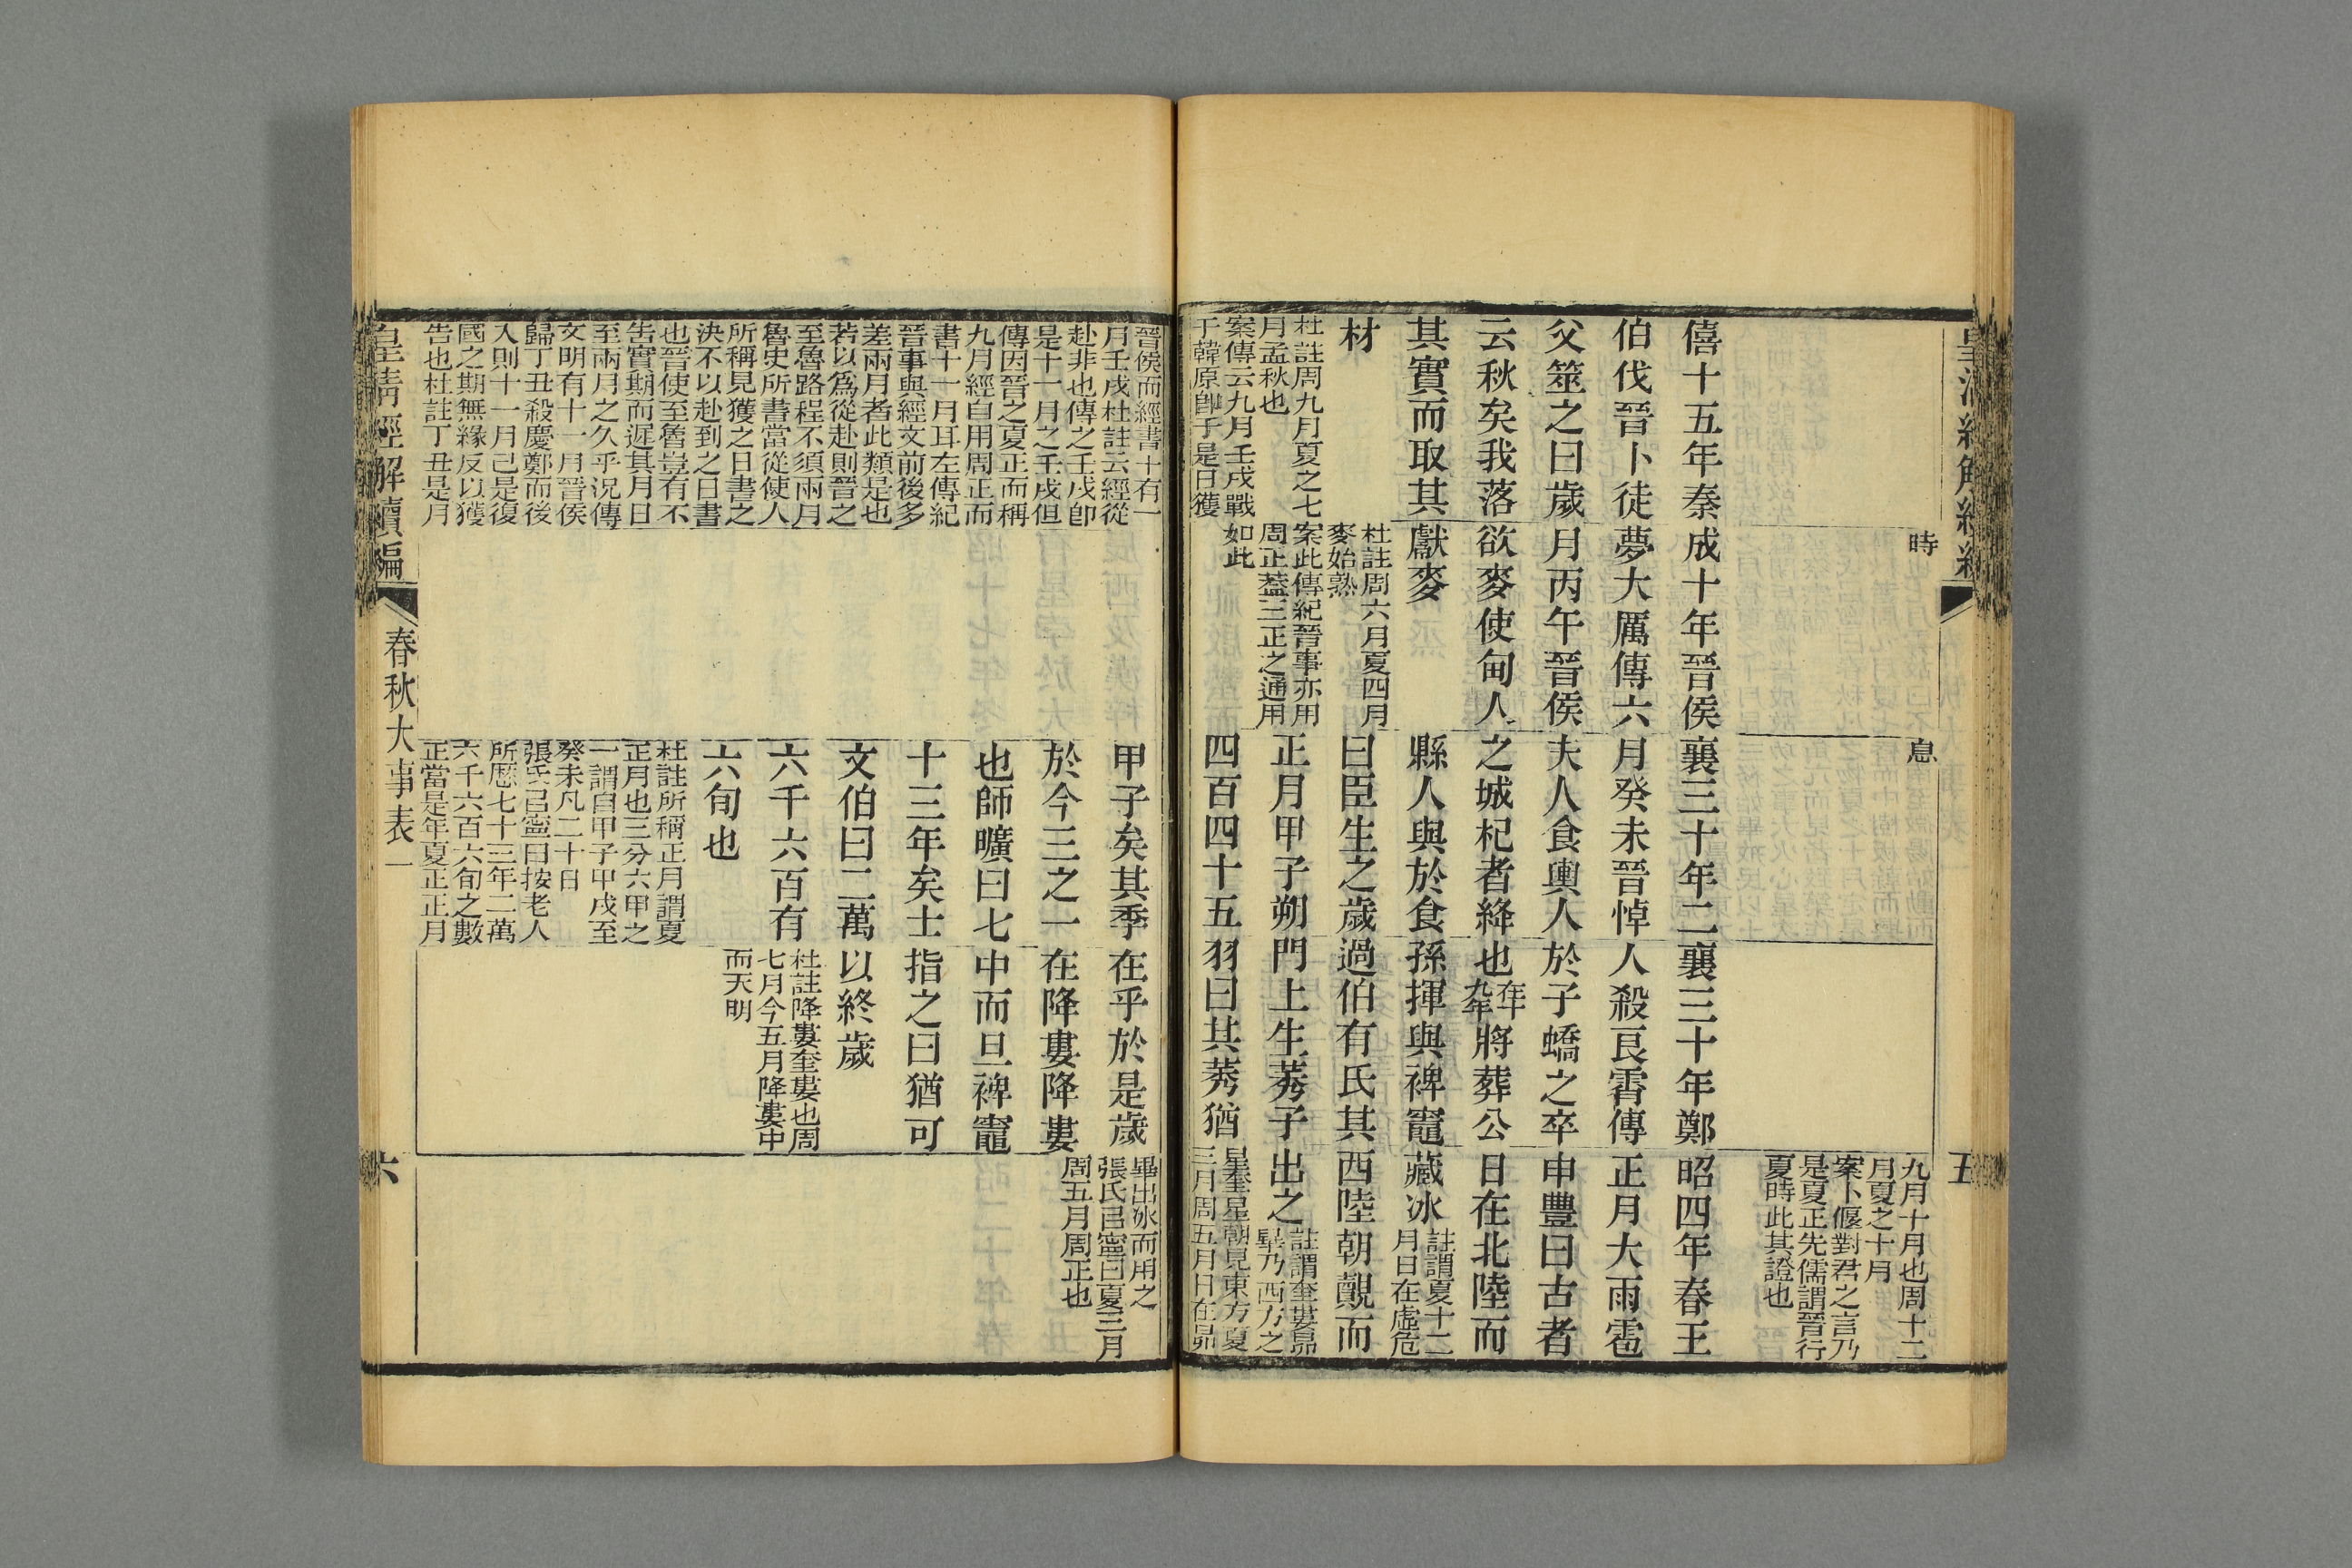 皇清經解續編
五
時
息
僖十五年秦
伯伐晉卜徒
父筮之曰歲
云秋矣我落
其實而取其
材
杜註周九月夏之七
月孟秋也
案傳云九月壬戌戰
于韓原卽于是日獲
成十年晉侯
夢大厲傳六
月丙午晉侯
欲麥使甸人
獻麥
杜註周六月夏四月
麥始熟
案此傳紀晉事亦用
周正蓋三正之通用
如此
襄三十年二
月癸未晉悼
夫人食輿人
之城杞者絳
縣人與於食
曰臣生之歲
正月甲子朔
四百四十五
襄三十年鄭
人殺良霄傳
於子蟜之卒
也在十九年將葬公
孫揮與裨竈
過伯有氏其
門上生莠子
羽曰其莠猶
九月十月也周十二
月夏之十月
案卜偃對君之言乃
是夏正先儒謂晉行
夏時此其證也
昭四年春王
正月大雨雹
申豐曰古者
日在北陸而
藏冰註謂夏十二月日在虛危
西陸朝覿而
出之註謂奎婁昴畢乃西方之
星奎星朝見東方夏
三月周五月日在昴
晉侯而經書十有一
月壬戌杜註云經從
赴非也傳之壬戌卽
是十一月之壬戌但
傳因晉之夏正而稱
九月經自用周正而
書十一月耳左傳紀
晉事與經文前後多
差兩月者此類是也
若以爲從赴則晉之
至魯路程不須兩月
魯史所書當從使人
所稱見獲之日書之
決不以赴到之日書
也晉使至魯豈有不
告實期而遲其月日
至兩月之久乎況傳
文明有十一月晉侯
歸丁丑殺慶鄭而後
入則十一月己是復
國之期無緣反以獲
告也杜註丁丑是月
甲子矣其季
於今三之一
也師曠曰七
十三年矣士
文伯曰二萬
六千六百有
六旬也
杜註所稱正月謂夏
正月也三分六甲之
一謂自甲子甲戌至
癸未凡二十日
張氏㠯寧曰按老人
所歷七十三年二萬
六千六百六旬之數
正當是年夏正正月
在乎於是歲
在降婁降婁
中而旦裨竈
指之曰猶可
以終歲
杜註降婁奎婁也周
七月今五月降婁中
而天明
畢出冰而用之
張氏㠯寧曰夏三月
周五月周正也
皇清經解續編
春秋大事表一
六